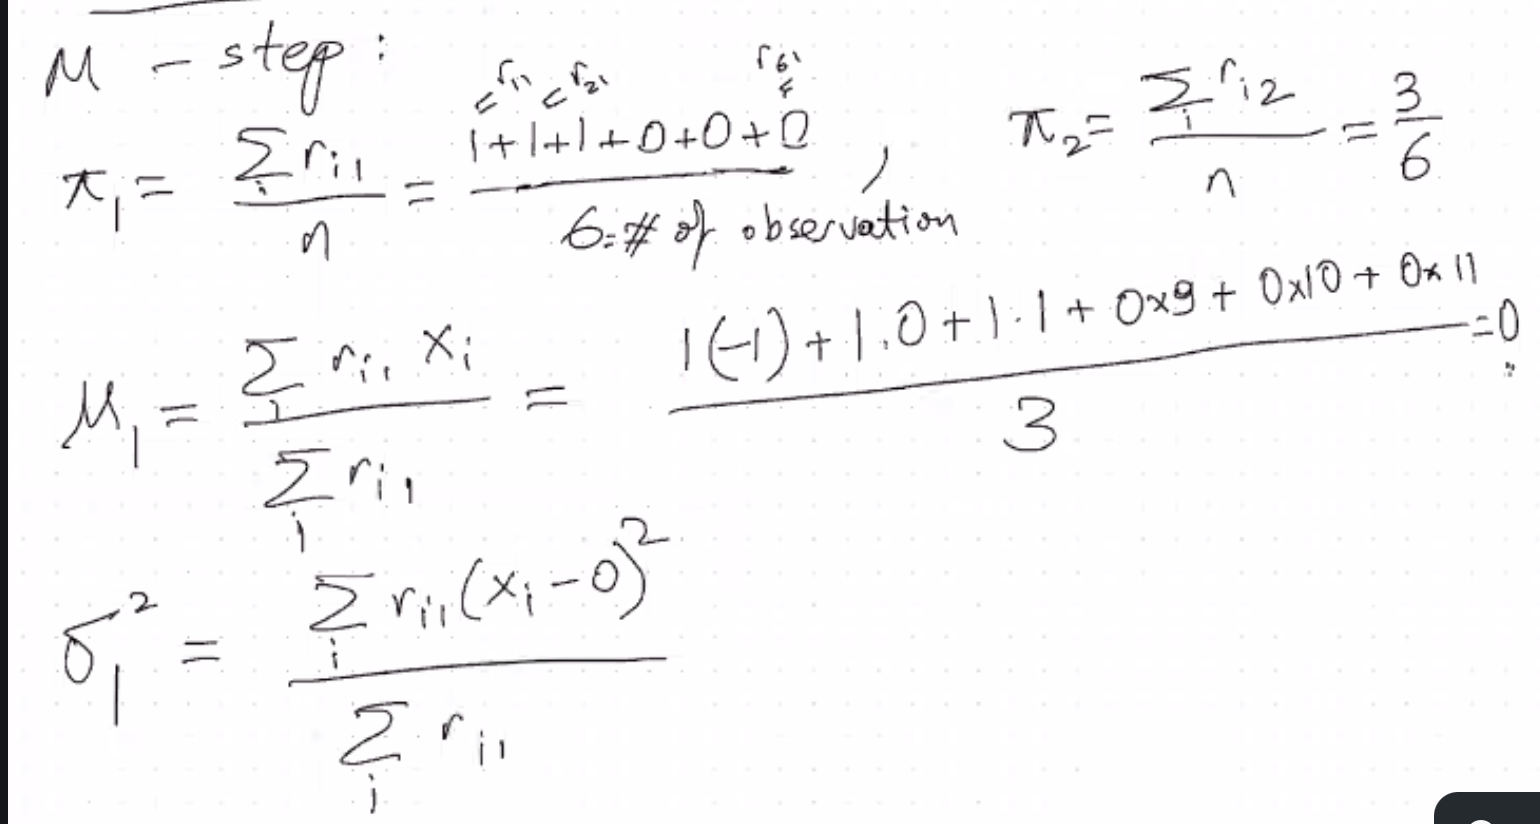 M - step:
π₁ = Σᵢ rᵢ₁ / n = (1+1+1+0+0+0) / (6 = # of observation), π₂ = Σᵢ rᵢ₂ / n = 3/6
r₁₁ r₂₁ r₆₁
μ₁ = Σᵢ rᵢ₁ xᵢ / Σᵢ rᵢ₁ = (1(-1) + 1.0 + 1.1 + 0x9 + 0x10 + 0x11) / 3 = 0
σ₁² = Σᵢ rᵢ₁ (xᵢ - 0)² / Σᵢ rᵢ₁